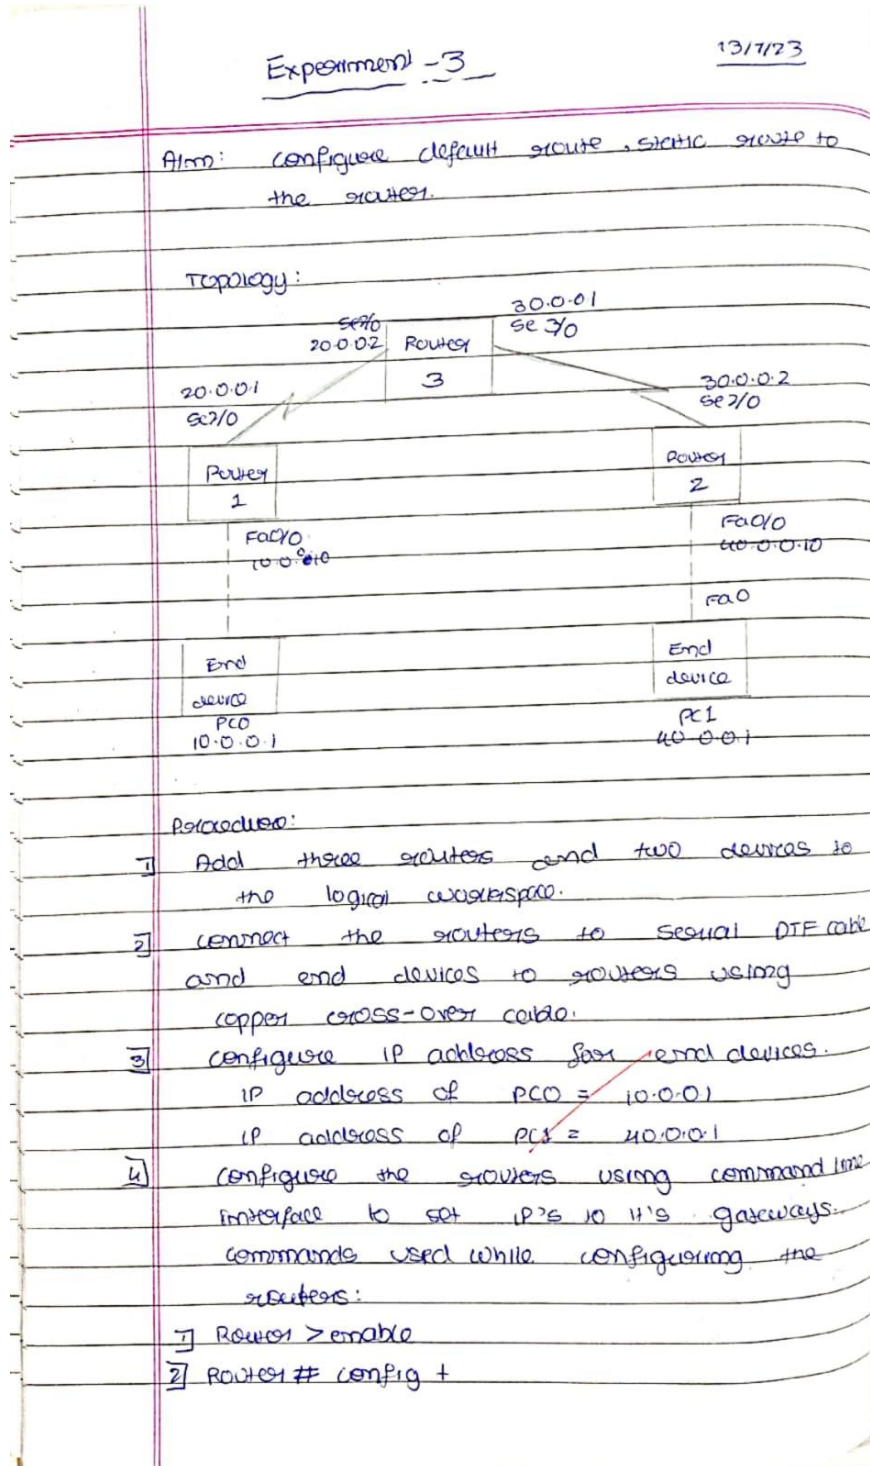 Experiment - 3
13/7/23
Aim: configure default route, static route to
the router.
Topology:
30.0.0.1
Se 3/0
Se2/0
20.0.0.2
Router
3
20.0.0.1
Se2/0
30.0.0.2
Se 2/0
Router
1
Router
2
Fa0/0
10.0.0.10
Fa0/0
40.0.0.10
Fa0
End
device
PC0
10.0.0.1
End
device
PC1
40.0.0.1
Procedure:
1] Add three routers and two devices to
the logical workspace.
2] connect the routers to serial DTE cable
and end devices to routers using
copper cross-over cable.
3] configure IP address for end devices.
IP address of PC0 = 10.0.0.1
IP address of PC1 = 40.0.0.1
4] configure the routers using command line
interface to set IP's to it's gateways.
commands used while configuring the
routers:
1] Router > enable
2] Router # config t